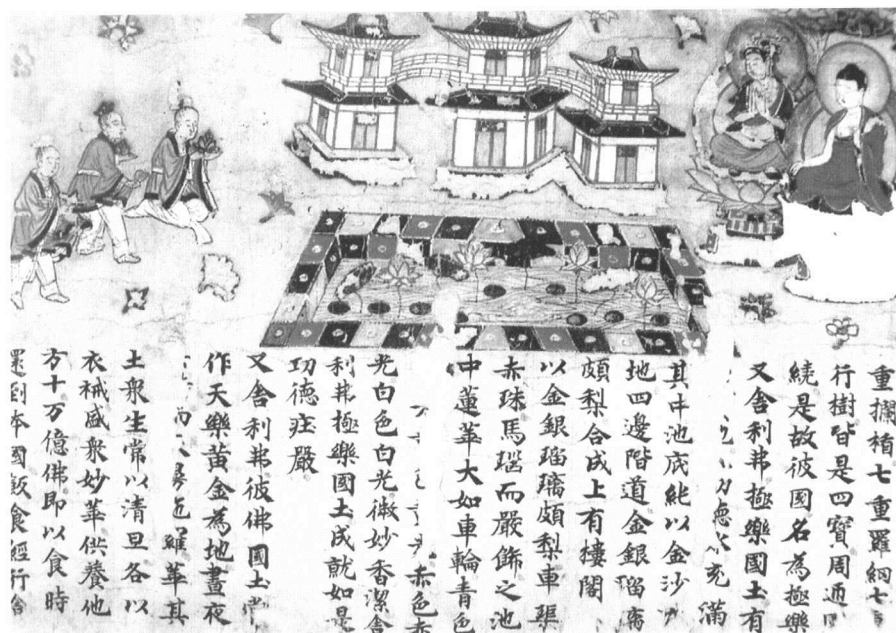 重攔楯七重羅網七
行樹皆是四寶周迊
繞是故彼國名為極樂
又舍利弗極樂國土有
功德水充滿
其中池底純以金沙
地四邊階道金銀瑠璃
頗梨合成上有樓閣
以金銀瑠璃頗梨車渠
赤珠馬瑙而嚴飾之池
中蓮華大如車輪青色
赤色赤
光白色白光微妙香潔舍
利弗極樂國土成就如是
功德莊嚴
又舍利弗彼佛國土常
作天樂黃金為地晝夜
羅華其
土衆生常以清旦各以
衣裓盛衆妙華供養他
方十万億佛即以食時
還到本國飯食經行